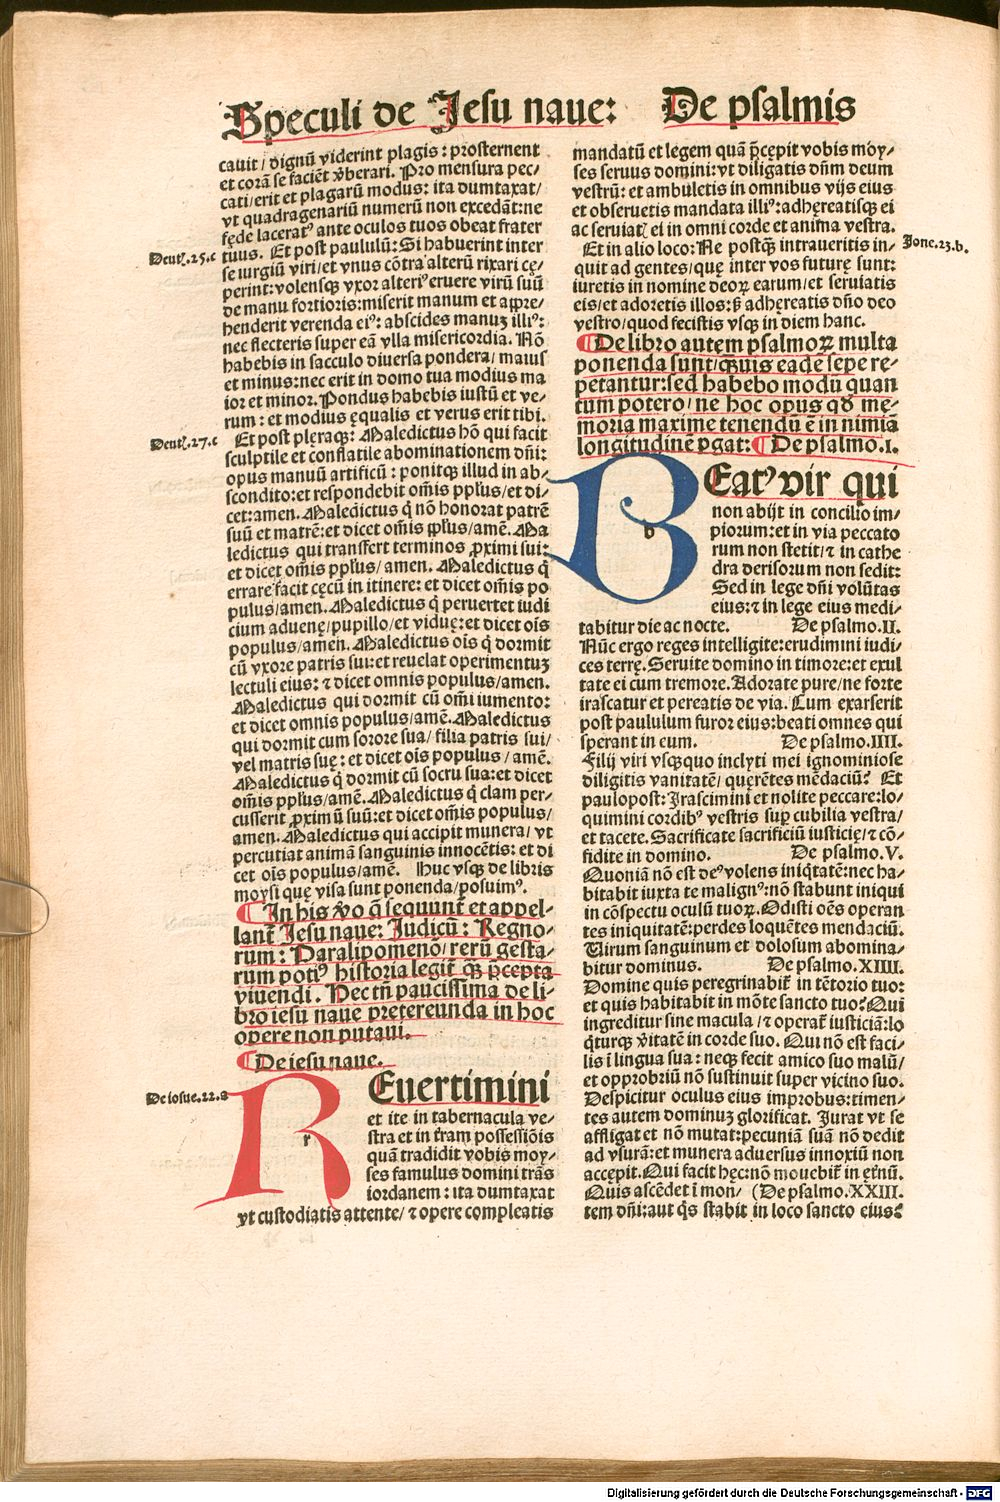 Speculi de Jesu naue: De psalmis
cauit / dignũ viderint plagis : prosternent
et corã se faciẽt v̄berari. Pro mensura pec-
cati/erit et plagarũ modus: ita dumtaxat/
vt quadragenariũ numerũ non excedãt:ne
fęde laceratꝰ ante oculos tuos obeat frater
Deutꝭ.25.c
tuus. Et post paululũ: Si habuerint inter
se iurgiũ viri/et vnus cõtra alterũ rixari cę/
perint:volensqꝫ vxor alteriꝰ eruere virũ suũ
de manu fortioris:miserit manum et appre/
henderit verenda eiꝰ: abscides manuꝫ illiꝰ:
nec flecteris super eã vlla misericordia. Nõ
habebis in sacculo diuersa pondera/ maius
et minus:nec erit in domo tua modius ma
ior et minor. Pondus habebis iustũ et ve-
rum : et modius ęqualis et verus erit tibi.
Deutꝭ.27.c
Et post plęraqꝫ: Maledictus hõ qui facit
sculptile et conflatile abominationem dñi:
opus manuũ artificũ : ponitqꝫ illud in ab/
scondito:et respondebit om̃is pplũs/et di/
cet:amen. Maledictus q̇ nõ honorat patrẽ
suũ et matrẽ:et dicet om̃is pplũs/amẽ. Ma
ledictus qui transfert terminos ꝓximi sui:
et dicet om̃is pplũs/ amen. Maledictus q̇
errare facit cęcũ in itinere: et dicet om̃is po
pulus/amen. Maledictus q̇ peruertet iudi
cium aduenę/pupillo/et viduę:et dicet oĩs
populus/amen. Maledictus oĩs q̇ dormit
cũ vxore patris sui:et reuelat operimentuꝫ
lectuli eius: ⁊ dicet omnis populus/amen.
Maledictus qui dormit cũ om̃i iumento:
et dicet omnis populus/amẽ. Maledictus
qui dormit cum sorore sua/ filia patris sui/
vel matris suę: et dicet oĩs populus / amẽ.
Maledictus q̇ dormit cũ socru sua:et dicet
om̃is pplũs/amẽ. Maledictus q̇ clam per/
cusserit ꝓximũ suũ:et dicet om̃is populus/
amen. Maledictus qui accipit munera/ vt
percutiat animã sanguinis innocẽtis: et di
cet oĩs populus/amẽ. Huc vsqꝫ de libris
moysi quę visa sunt ponenda/posuimꝰ.
¶ In his v̄o q̃ sequunt̃ et appel-
lant̃ Jesu naue: Judicũ: Regno-
rum : Paralipomenõ/ rerũ gesta-
rum potiꝰ historia legit̃ q̃ꝫ p̃cepta
viuendi. Nec tñ paucissima de li-
bro iesu naue pretereunda in hoc
opere non putaui.
¶ De iesu naue.
De iosue.22.a
REuertimini
et ite in tabernacula ve-
stra et in t̃ram possessiõis
quã tradidit vobis moy-
ses famulus domini trãs
iordanem : ita dumtaxat
vt custodiatis attente/ ⁊ opere compleatis
mandatũ et legem quã p̃cępit vobis moy-
ses seruus domini:vt diligatis dñm deum
vestrũ: et ambuletis in omnibus vijs eius
et obseruetis mandata illiꝰ:adhęreatisqꝫ ei
ac seruiatꝭ ei in omni corde et anima vestra.
Et in alio loco: Ne postq̃ꝫ intraueritis in-
Jouc.23.b.
quit ad gentes/quę inter vos futurę sunt:
iuretis in nomine deoꝝ earum/et seruiatis
eis/et adoretis illos:ß adhęreatis dño deo
vestro/quod fecistis vsqꝫ in diem hanc.
¶ De libro autem psalmoꝝ multa
ponenda sunt/q̃ꝫuis eadẽ sepe re-
petantur:sed habebo modũ quan
tum potero/ ne hoc opus qð mę-
moria maxime tenendũ ẽ in nimiã
longitudinẽ pgat: ¶ De psalmo.I.
BEatꝰ vir qui
non abijt in concilio im/
piorum:et in via peccato
rum non stetit/⁊ in cathe
dra derisorum non sedit:
Sed in lege dñi volũtas
eius:⁊ in lege eius medi/
tabitur die ac nocte. De psalmo.II.
Nũc ergo reges intelligite:erudimini iudi/
ces terrę. Seruite domino in timore:et exul
tate ei cum tremore. Adorate pure/ne forte
irascatur et pereatis de via. Cum exarserit
post paululum furor eius:beati omnes qui
sperant in eum. De psalmo.IIII.
Filij viri vsqꝫquo inclyti mei ignominiose
diligitis vanitatẽ/ quęrẽtes mẽdaciũ? Et
paulopost: Irascimini et nolite peccare:lo/
quimini cordibꝰ vestris suꝑ cubilia vestra/
et tacete. Sacrificate sacrificiũ iusticię/⁊ cõ/
fidite in domino. De psalmo.V.
Quoniã nõ est deꝰ volens iniq̇tatẽ:nec ha/
bitabit iuxta te malignꝰ:nõ stabunt iniqui
in cõspectu oculũ tuoꝝ. Odisti oẽs operan
tes iniquitatẽ:perdes loquẽtes mendaciũ.
Uirum sanguinum et dolosum abomina/
bitur dominus. De psalmo.XIIII.
Domine quis peregrinabit̃ in tẽtorio tuo:
et quis habitabit in mõte sancto tuo? Qui
ingreditur sine macula / ⁊ operat̃ iusticiã:lo
q̇turqꝫ v̄itatẽ in corde suo. Qui nõ est faci/
lis ĩ lingua sua : neqꝫ fecit amico suo malũ/
et opprobriũ nõ sustinuit super vicino suo.
Despicitur oculus eius improbus:timen/
tes autem dominuꝫ glorificat. Jurat vt se
affligat et nõ mutat:pecuniã suã nõ dedit
ad vsurã:et munera aduersus innoxiũ non
accępit. Qui facit hęc:nõ mouebit̃ in ęt̃nũ.
Quis ascẽdet ĩ mon/ (De psalmo.XXIII.
tem dñi:aut q̇s stabit in loco sancto eius?
Digitalisierung gefördert durch die Deutsche Forschungsgemeinschaft - DFG